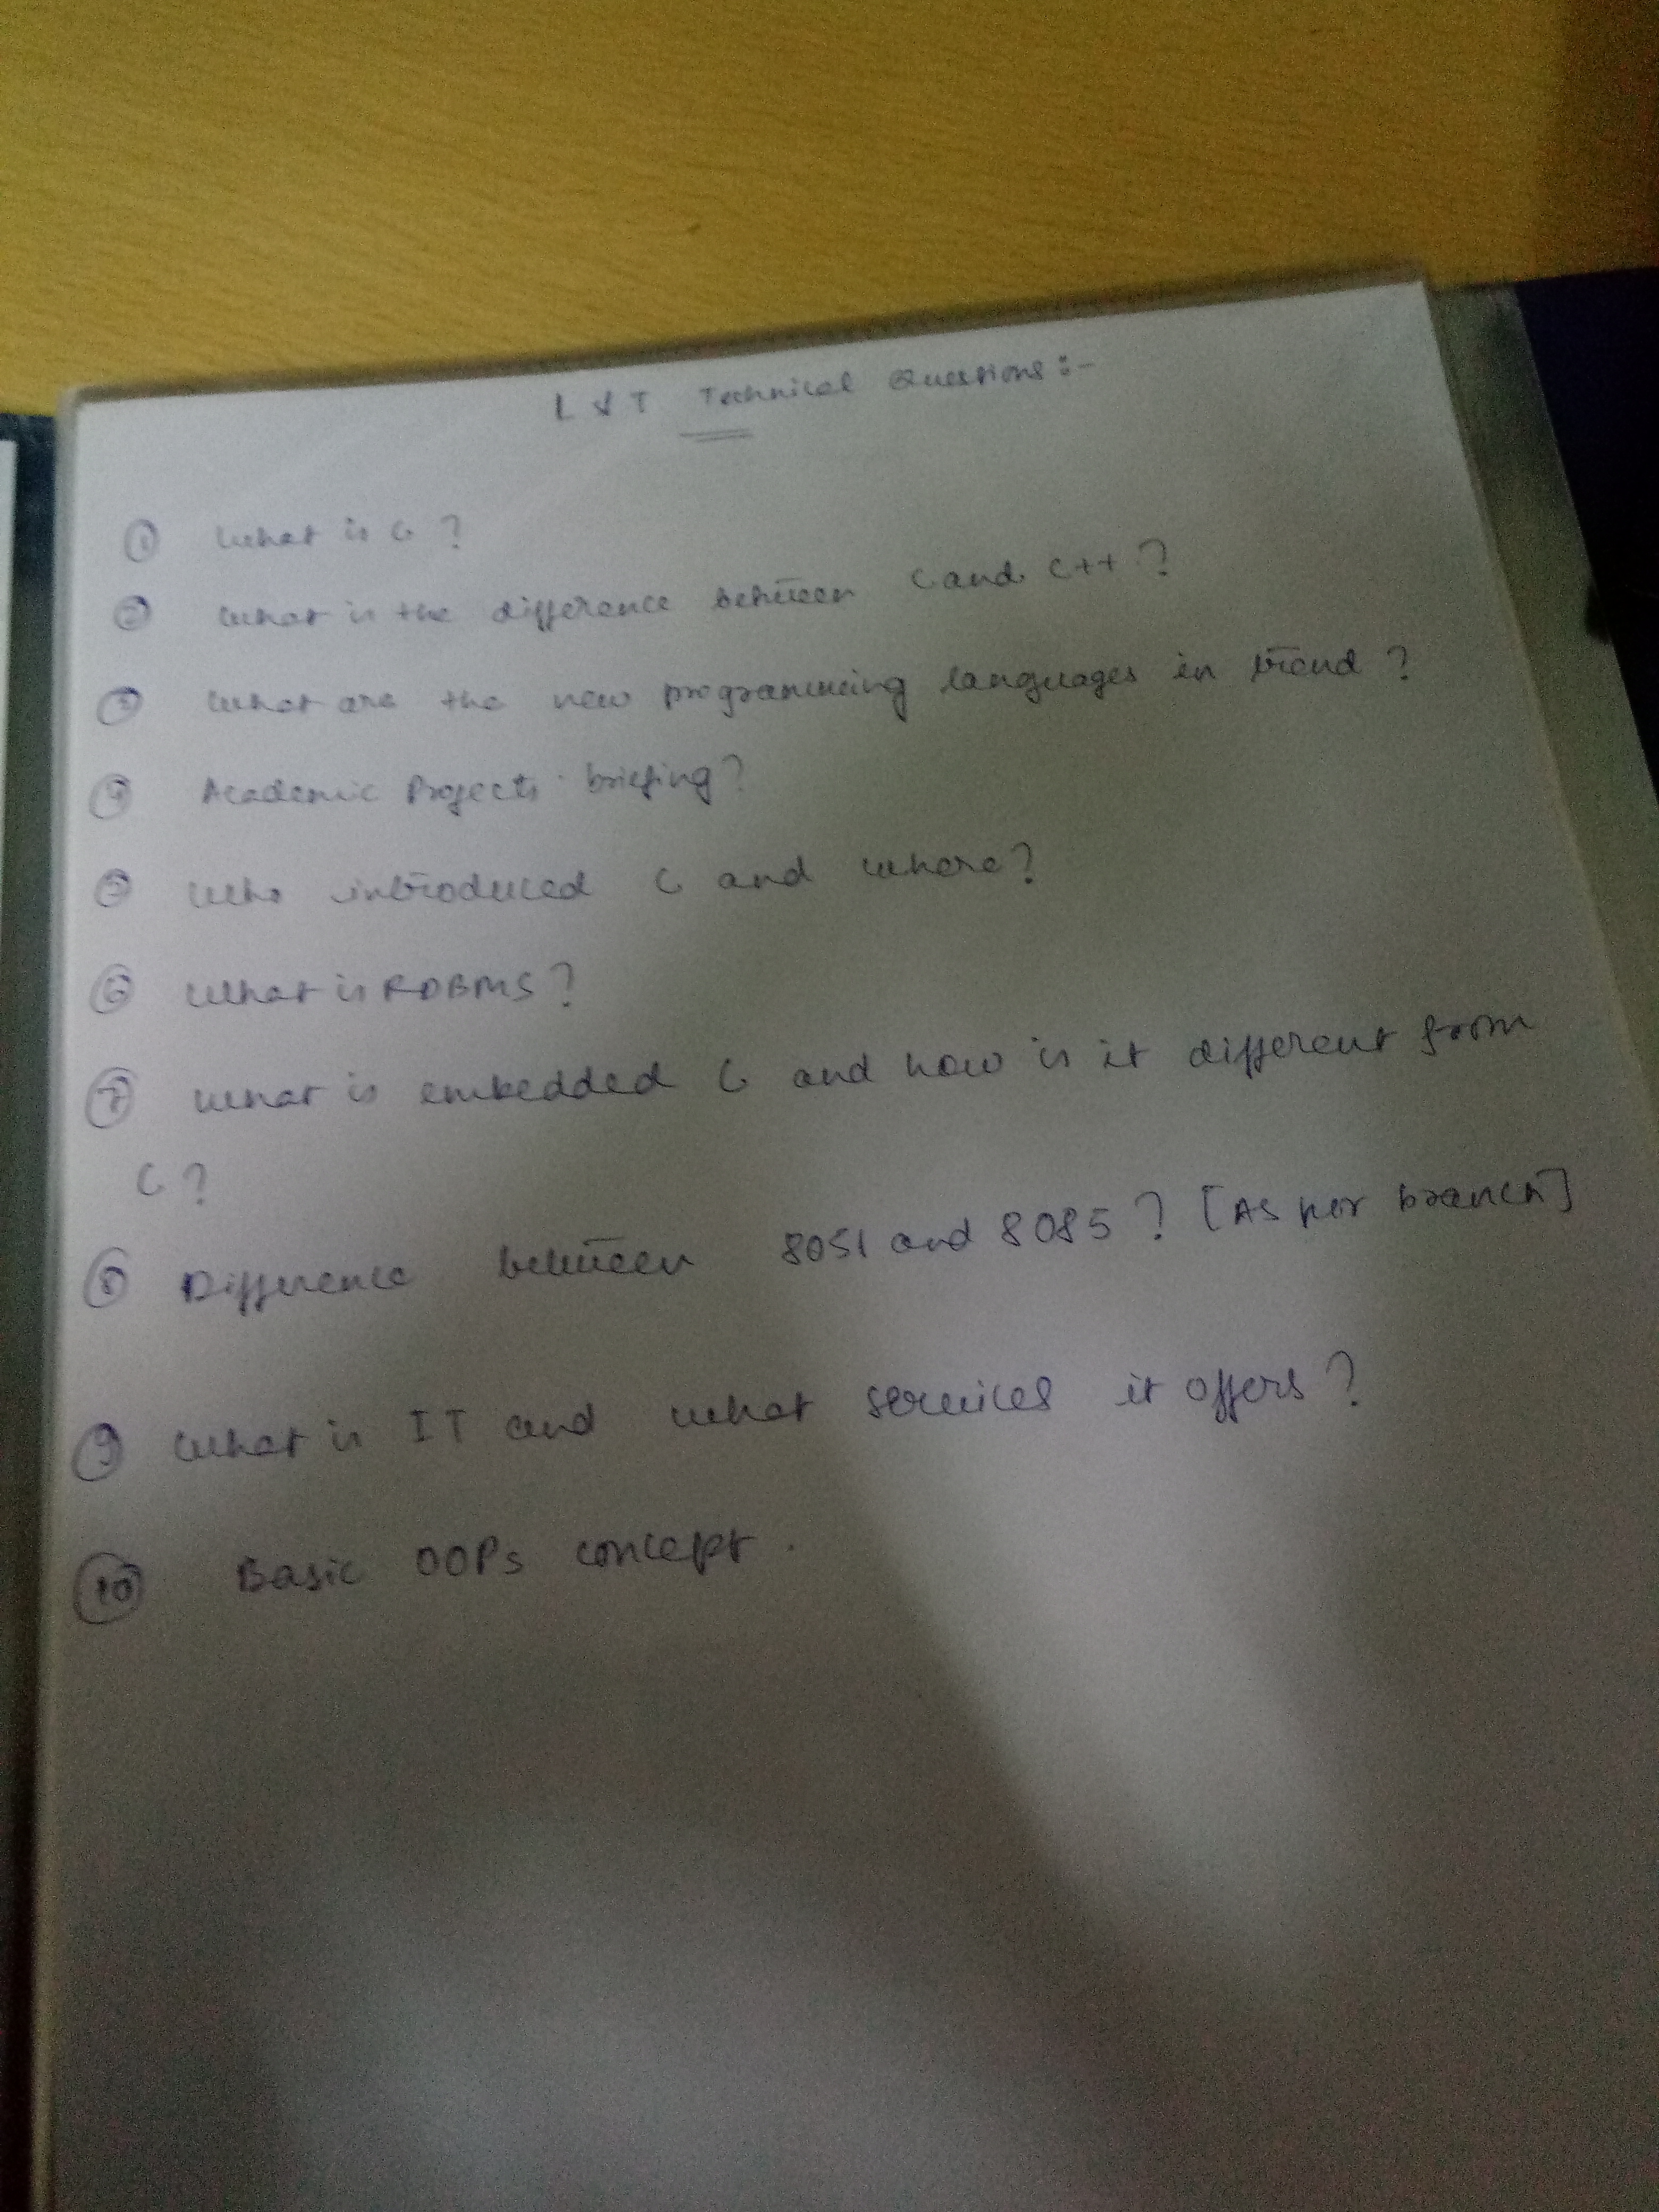 L & T Technical Questions :-
① What is C ?
② What is the difference between C and C++ ?
③ What are the new programming languages in trend ?
④ Academic Projects briefing ?
⑤ Who introduced C and where ?
⑥ What is RDBMS ?
⑦ What is embedded C and how is it different from
C ?
⑧ Difference between 8051 and 8085 ? [As per branch]
⑨ What is IT and what services it offers ?
⑩ Basic OOPs concept .